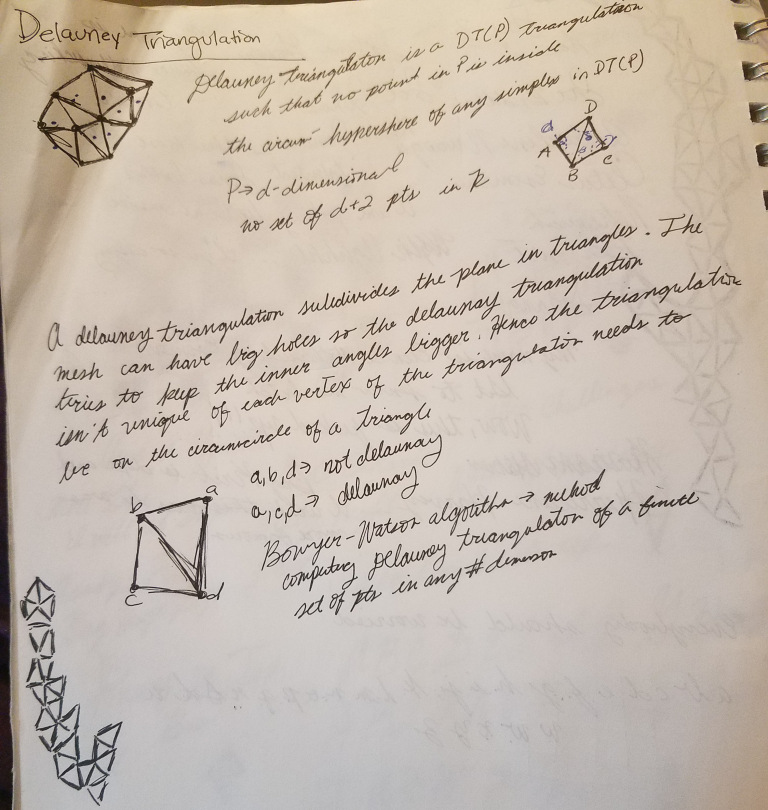 Delauney Triangulation
Delauney triangulation is a DT(P) triangulation
such that no point in P is inside
the circum-hypershere of any simplex in DT(P)
D
α
A
C
B
P→d-dimensional
no set of d+2 pts in R
A delauney triangulation subdivides the plane in triangles. The
mesh can have big holes so the delaunay triangulation
tries to keep the inner angles bigger. Hence the triangulation
isn't unique of each vertex of the triangulation needs to
be on the circumcircle of a triangle
a,b,d→ not delaunay
a,c,d→ delaunay
b
a
c
d
Bowyer-Watson algorithm → method
computing Delauney triangulation of a finite
set of pts in any # dimension